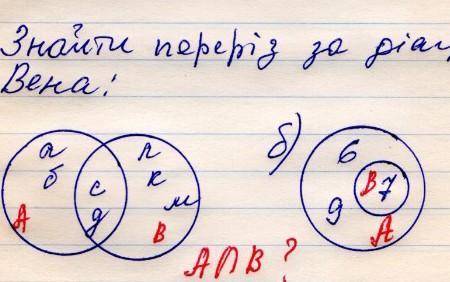 Знайти переріз за діаг
Вена:
а п б)
б с к 6
д м В 7
А В 9
А
А∩В ?